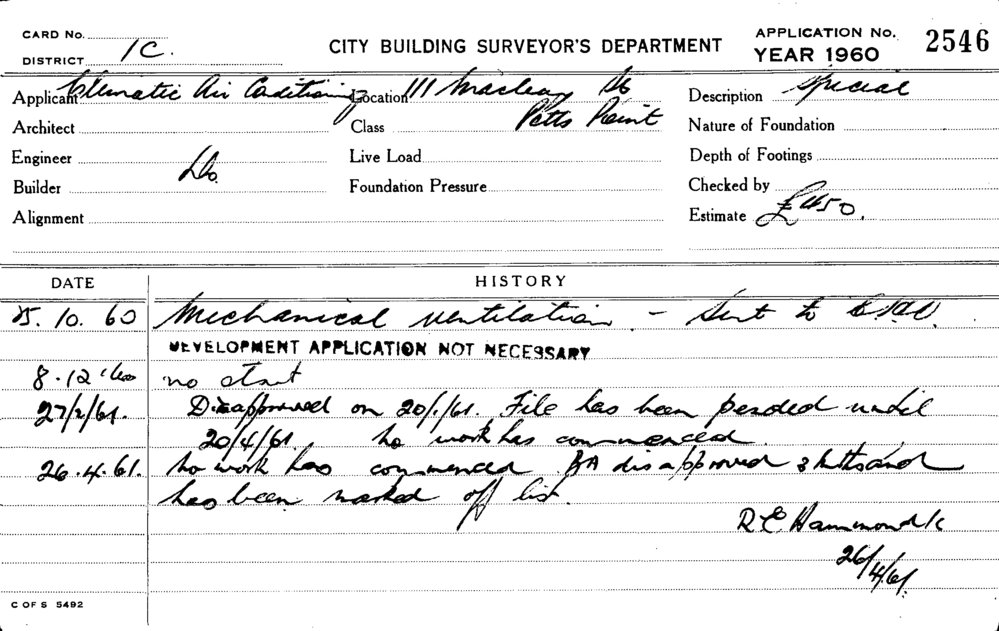 CARD No.
DISTRICT 1C.
CITY BUILDING SURVEYOR'S DEPARTMENT
APPLICATION No. 2546
YEAR 1960
Applicant Climatic Air Conditioning
Location 111 Macleay St
Description Special
Architect
Class Potts Point
Nature of Foundation
Engineer
Live Load
Depth of Footings
Builder Do.
Foundation Pressure
Checked by
Alignment
Estimate £450.
DATE HISTORY
25.10.60 Mechanical ventilation - Sent to
DEVELOPMENT APPLICATION NOT NECESSARY
8.12.60 no start
27/2/61. Disapproved on 20/1/61. File has been pended until
20/4/61, no work has commenced.
26.4.61. No work has commenced. BA disapproved &
has been marked off list.
R E Hammond
26/4/61.
C OF S 5492